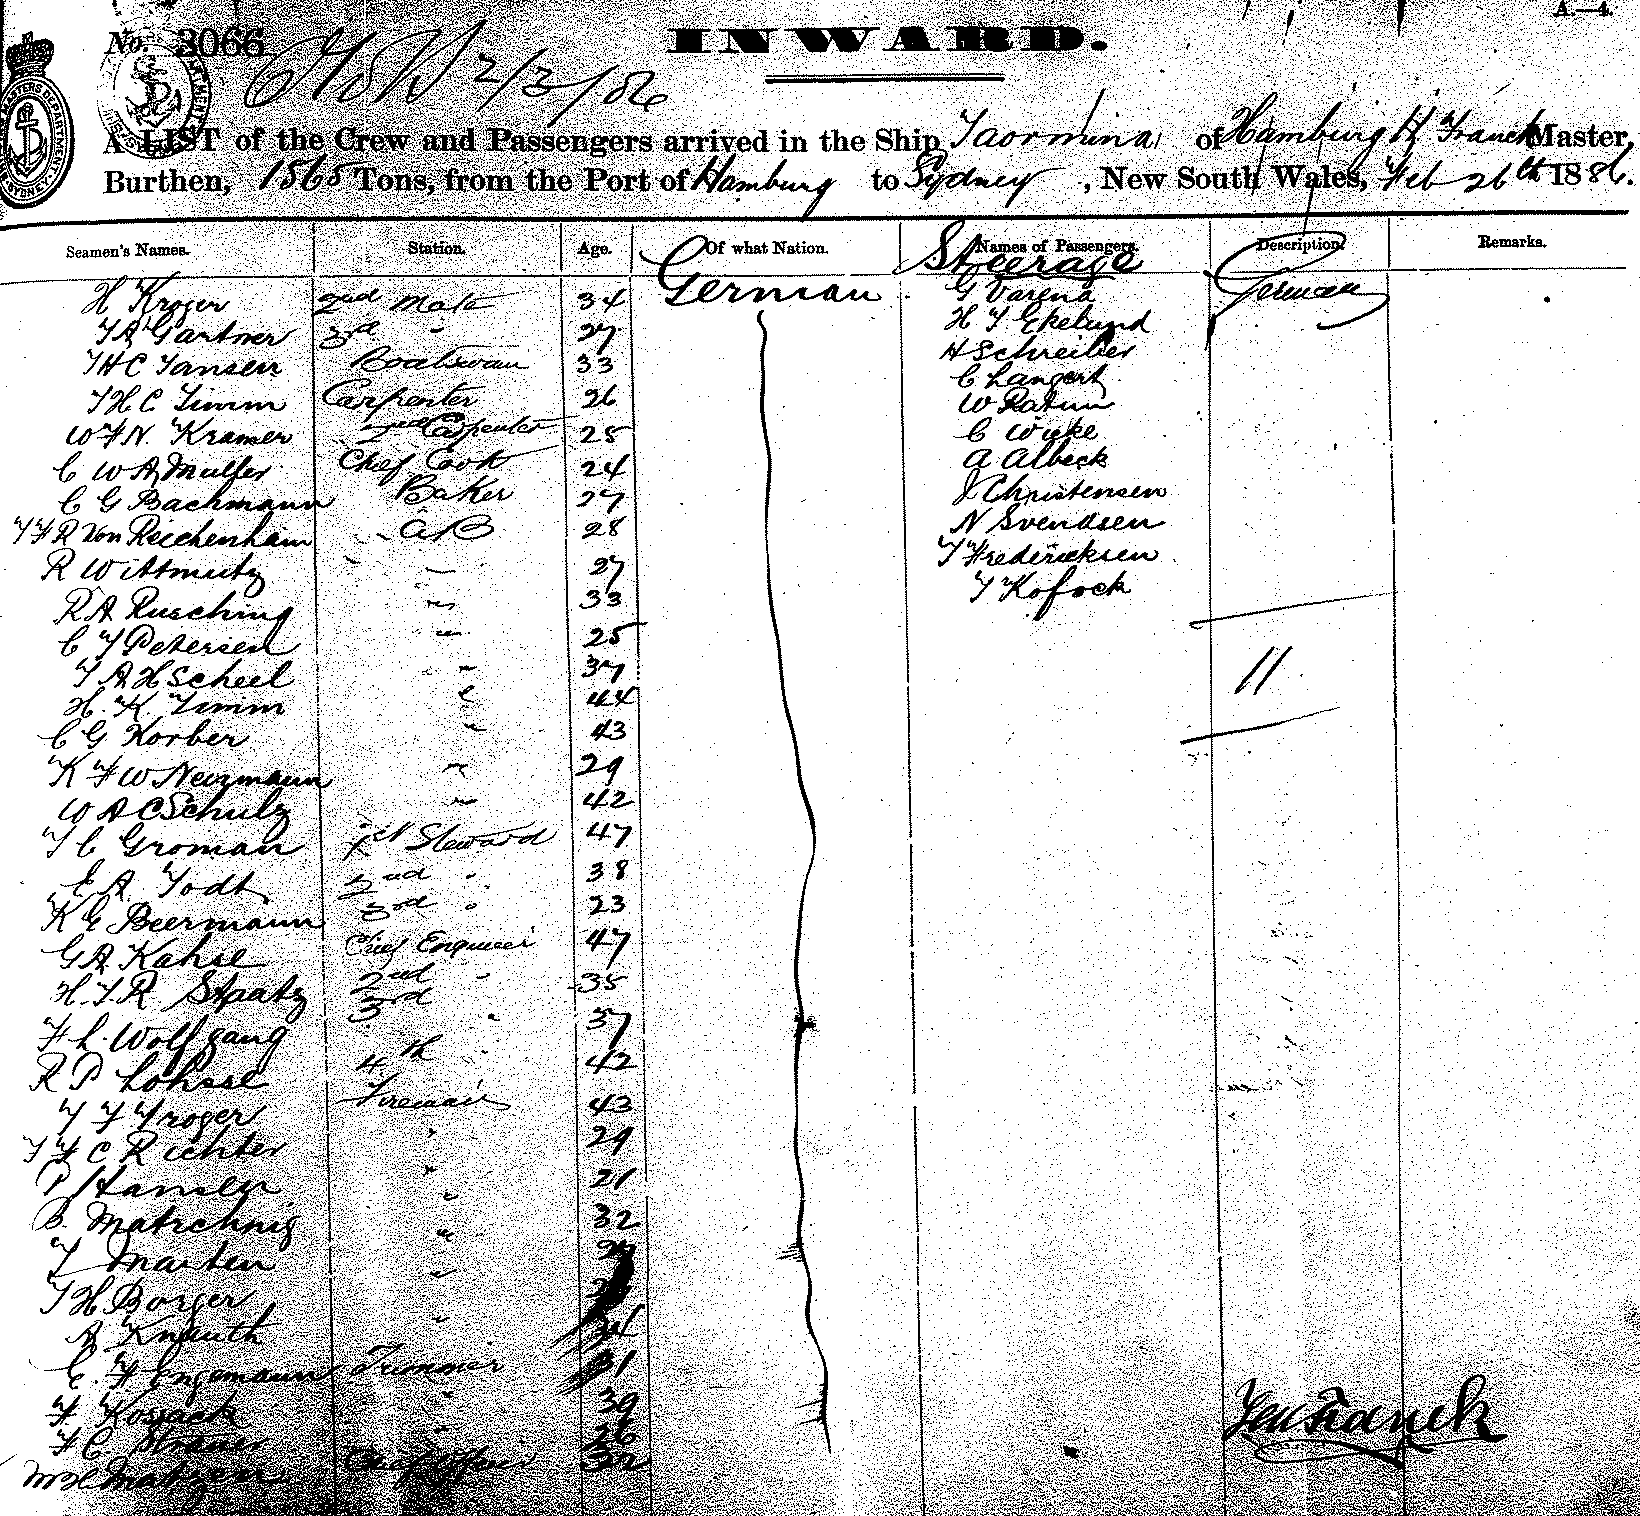 A.—4.
No. 3066 INWARD.
2/3/86
A LIST of the Crew and Passengers arrived in the Ship Taormina of Hamburg H Franck Master,
Burthen, 1565 Tons, from the Port of Hamburg to Sydney, New South Wales, Feb 26th 1886.
Seamen's Names. Station. Age. Of what Nation. Names of Passengers. Description. Remarks.
Steerage
H Kroger 2nd Mate 34 German G Varena German
J A Gartner 3rd " 27 H J Ekelund
J H C Jansen Boatswain 33 H Schreiber
J H C Timm Carpenter 26 C Langert
W F N. Kramer 2nd Carpenter 25 W Ratum
C W A Muller Chief Cook 24 C Wyke
C G Bachmann Baker 27 A Albeck
J F R Von Reichenhaim AB 28 J Christensen
R Wittmutz " 27 N Svendsen
R A Rusching " 33 J Fredericksen
C J Petersen " 25 J Kofock
J A H Scheel " 37 11
H. K. Timm " 44
C G Korber " 43
K F W Neurmann " 29
W A C Schulz " 42
J C Groman 1st Steward 47
E A Jodt 2nd " 38
K G Beermann 3rd " 23
G A Kahse Chief Engineer 47
H. J. R Spatz 2nd " 35
F L. Wolfgang 3rd " 37
R P Lohsse 4th 42
J F Kroger Fireman 43
J F C Richter " 29
P Hansen " 21
B. Matschnig " 32
J Marten "
J H Borger "
A Knauth " 34
E. F Engemann Trimmer 31
F. Kossack " 39
F C. " 26
Matzen Chief Officer 32
Franck